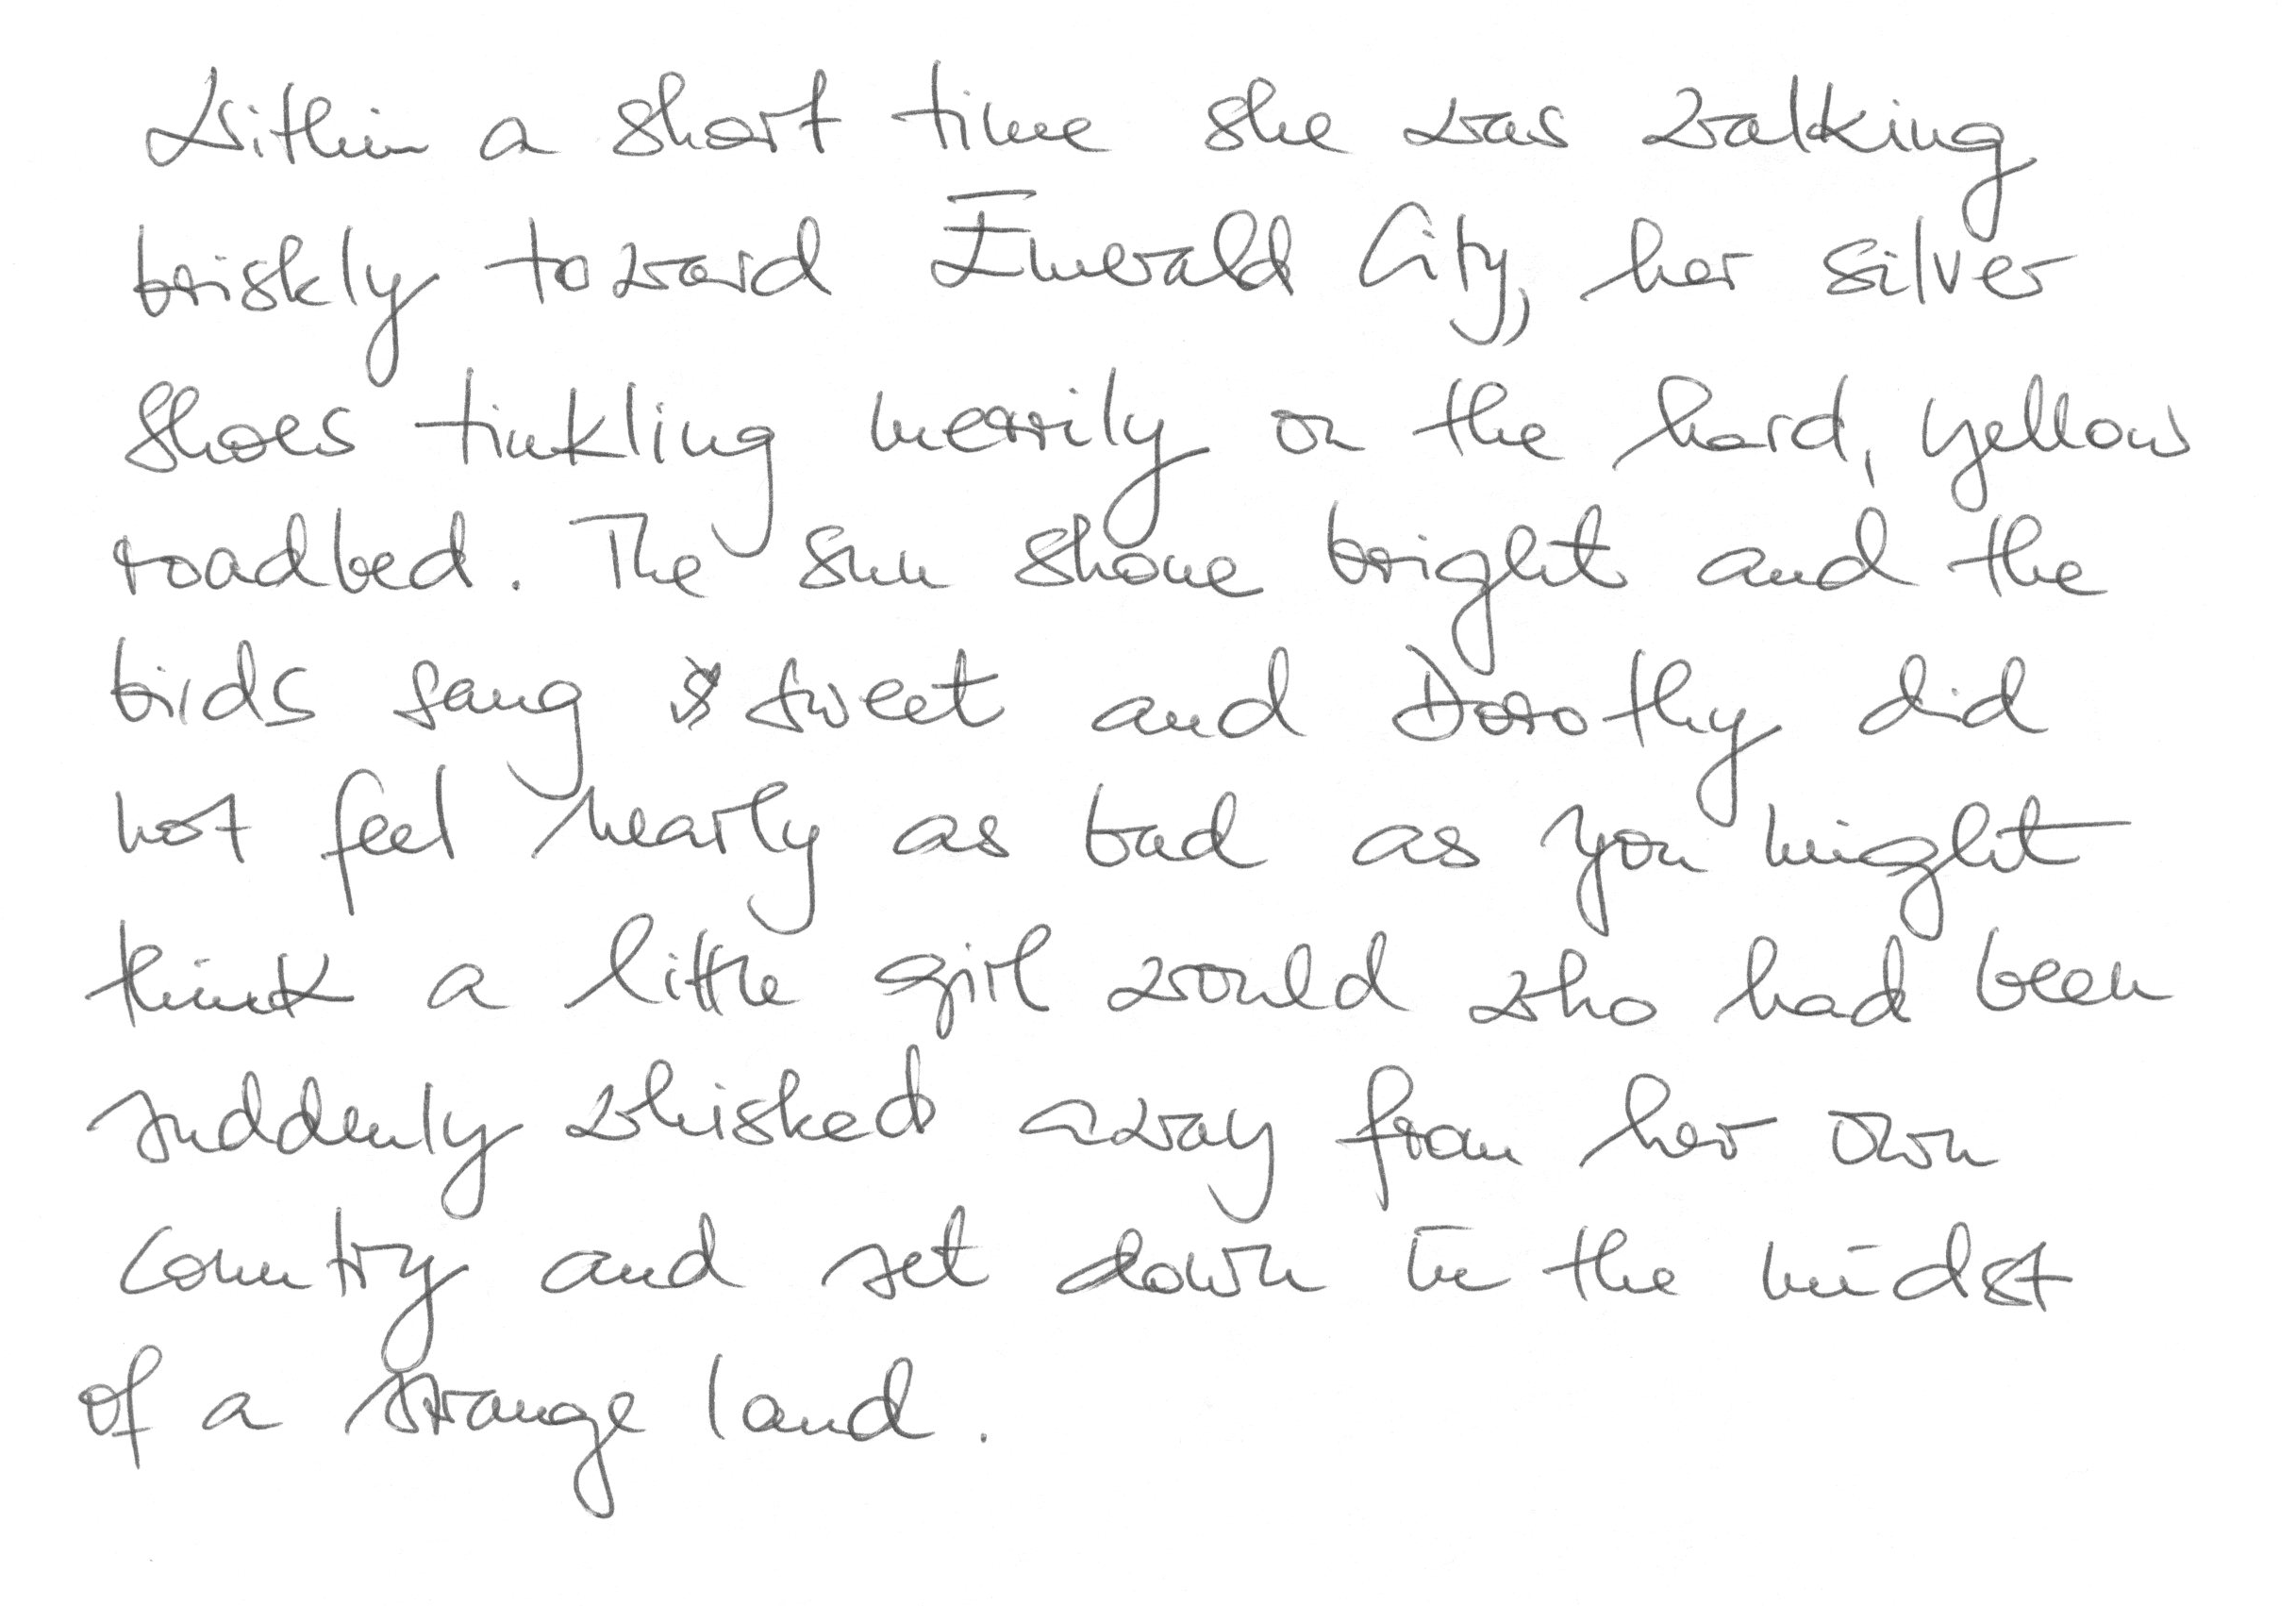 Within a short time she was walking
briskly toward Emerald City, her silver
shoes tinkling merrily on the hard, yellow
roadbed. The sun shone bright and the
birds sang sweet and Dorothy did
not feel nearly as bad as you might
think a little girl would who had been
suddenly whisked away from her own
country and set down in the midst
of a strange land.